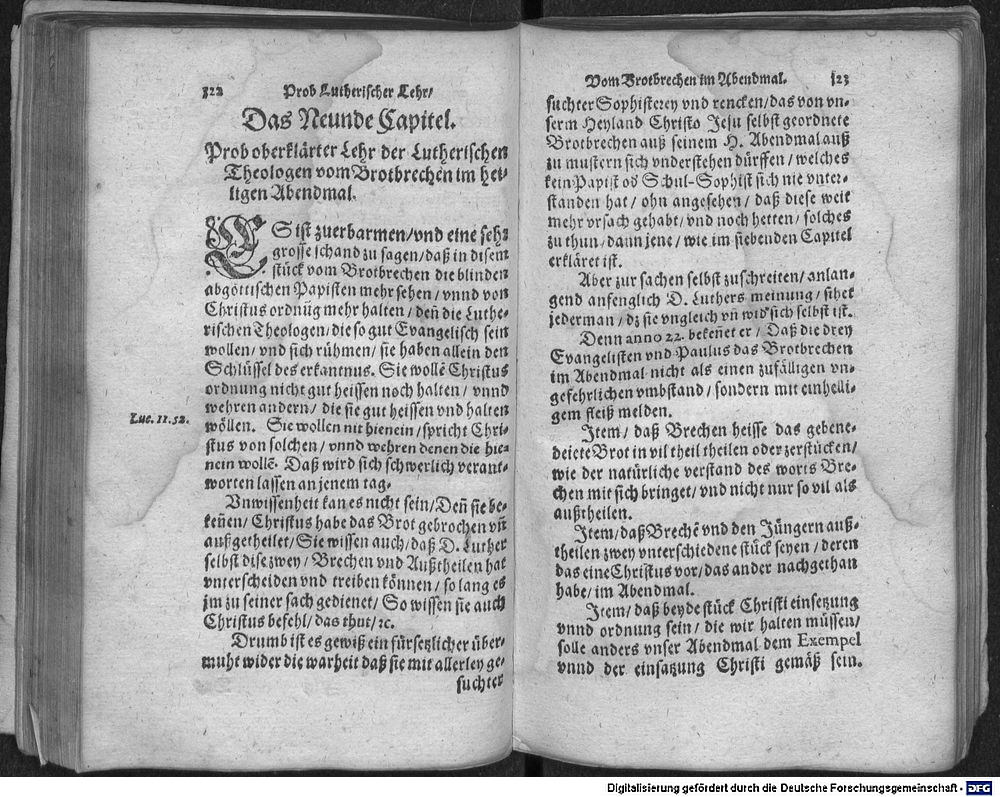 322 Prob Lutherischer Lehr/
Das Neunde Capitel.
Prob oberklärter Lehr der Lutherischen
Theologen vom Brotbrechen im hei-
ligen Abendmal.
ES ist zuerbarmen/vnd eine sehr
grosse schand zu sagen/daß in disem
stück vom Brotbrechen die blinden
abgöttischen Papisten mehr sehen/ vnnd von
Christus ordnūg mehr halten/ deñ die Luthe-
rischen Theologen/die so gut Evangelisch sein
wollen/ vnd sich rühmen/ sie haben allein den
Schlüssel des erkantnus. Sie wollē Christus
ordnung nicht gut heissen noch halten/ vnnd
wehren andern/ die sie gut heissen vnd halten
wöllen. Sie wollen nit hienein/spricht Chri-
Luc. 11. 52.
stus von solchen/ vnnd wehren denen die hie-
nein wollē. Daß wird sich schwerlich verant-
worten lassen an jenem tag.
Vnwissenheit kan es nicht sein/Deñ sie be-
keñen/ Christus habe das Brot gebrochen vñ
außgetheilet/Sie wissen auch/daß D. Luther
selbst dise zwey/ Brechen vnd Außtheilen hat
vnterscheiden vnd treiben können/ so lang es
jm zu seiner sach gedienet/ So wissen sie auch
Christus befehl/das thut/ꝛc.
Drumb ist es gewiß ein fürsetzlicher über-
muht wider die warheit daß sie mit allerley ge-
suchter
Vom Brotbrechen im Abendmal. 323
suchter Sophisterey vnd rencken/das von vn-
serm Heyland Christo Jesu selbst geordnete
Brotbrechen auß seinem H. Abendmal auß
zu mustern sich vnderstehen dürffen/ welches
kein Papist od̕ Schul-Sophist sich nie vnter-
standen hat/ ohn angesehen/ daß diese weit
mehr vrsach gehabt/vnd noch hetten/ solches
zu thun/dann jene/ wie im siebenden Capitel
erkläret ist.
Aber zur sachen selbst zuschreiten/anlan-
gend anfenglich D. Luthers meinung/ sihet
jederman/dz sie vngleich vñ wid̕ sich selbst ist.
Denn anno 22. bekeñet er/ Daß die drey
Evangelisten vnd Paulus das Brotbrechen
im Abendmal nicht als einen zufälligen vn-
gefehrlichen vmbstand/ sondern mit einhelli-
gem fleiß melden.
Item/ daß Brechen heisse das gebene-
deiete Brot in vil theil theilen oder zerstücken/
wie der natürliche verstand des worts Bre-
chen mit sich bringet/vnd nicht nur so vil als
außtheilen.
Item/daß Brechē vnd den Jüngern auß-
theilen zwey vnterschiedene stück seyen/ deren
das eine Christus vor/das ander nachgethan
habe/im Abendmal.
Item/ daß beyde stück Christi einsetzung
vnnd ordnung sein/ die wir halten müssen/
solle anders vnser Abendmal dem Exempel
vnnd der einsatzung Christi gemäß sein.
Digitalisierung gefördert durch die Deutsche Forschungsgemeinschaft - DFG